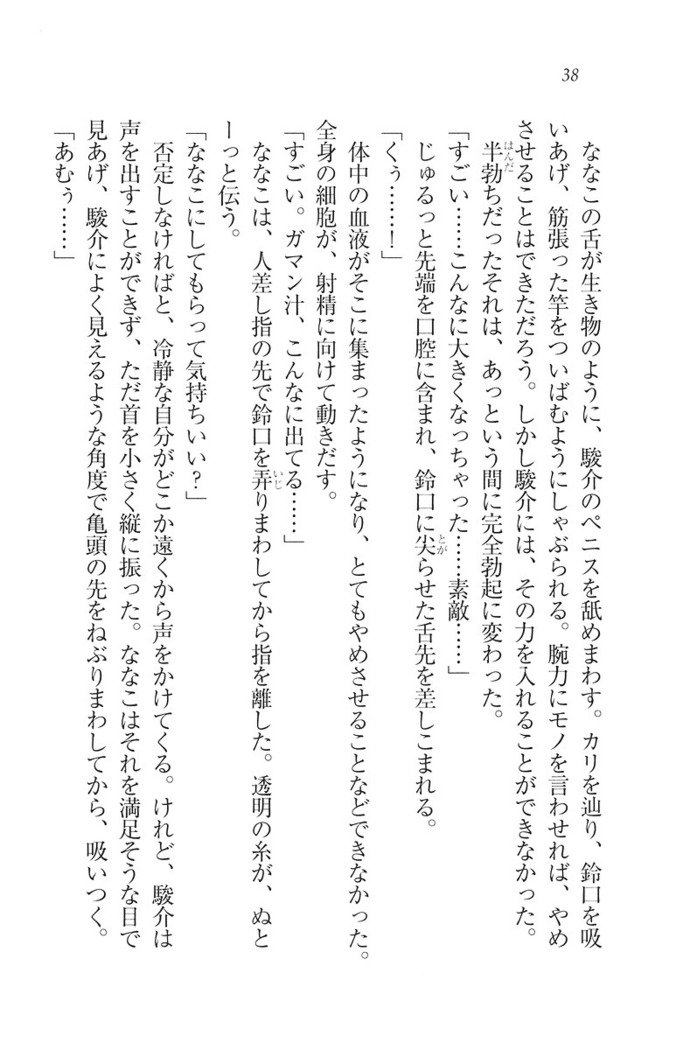 38
ななこの舌が生き物のように、駿介のペニスを舐めまわす。カリを辿り、鈴口を吸
いあげ、筋張った竿をついばむようにしゃぶられる。腕力にモノを言わせれば、やめ
させることはできただろう。しかし駿介には、その力を入れることができなかった。
半勃ちだったそれは、あっという間に完全勃起に変わった。
「すごい……こんなに大きくなっちゃった……素敵……」
じゅるっと先端を口腔に含まれ、鈴口に尖らせた舌先を差しこまれる。
「くぅ……！」
体中の血液がそこに集まったようになり、とてもやめさせることなどできなかった。
全身の細胞が、射精に向けて動きだす。
「すごい。ガマン汁、こんなに出てる……」
ななこは、人差し指の先で鈴口を弄りまわしてから指を離した。透明の糸が、ぬと
ーっと伝う。
「ななこにしてもらって気持ちいい？」
否定しなければと、冷静な自分がどこか遠くから声をかけてくる。けれど、駿介は
声を出すことができず、ただ首を小さく縦に振った。ななこはそれを満足そうな目で
見あげ、駿介によく見えるような角度で亀頭の先をねぶりまわしてから、吸いつく。
「あむぅ……」